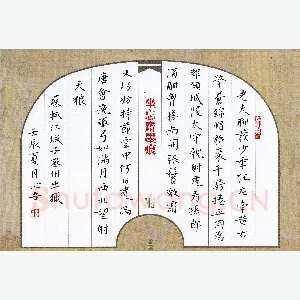 老夫聊發少年狂左牽黃右
擎蒼錦帽貂裘千騎卷平岡為
報傾城隨太守親射虎看孫郎
酒酣胸膽尚開張鬢微霜
坐心齋墨痕
又何妨持節雲中何日遣馮
唐會挽雕弓如滿月西北望射
天狼
蘇軾江城子密州出獵
壬辰夏月心